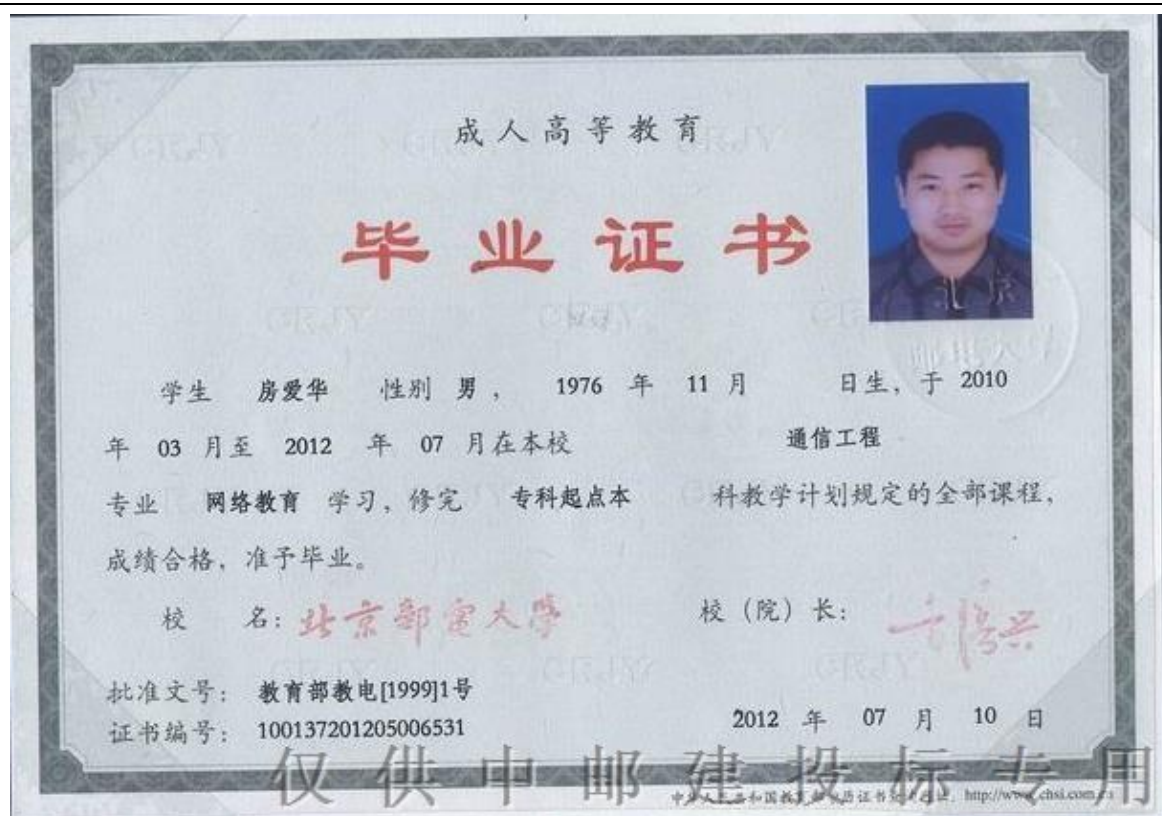 成人高等教育
毕业证书
学生 房爱华 性别 男, 1976 年 11 月 日生, 于 2010
年 03 月至 2012 年 07 月在本校 通信工程
专业 网络教育 学习, 修完 专科起点本 科教学计划规定的全部课程,
成绩合格, 准予毕业。
校 名: 北京邮电大学 校(院)长:
批准文号: 教育部教电[1999]1号
证书编号: 100137201205006531
2012 年 07 月 10 日
仅供中邮建投标专用
http://www.chsi.com.cn